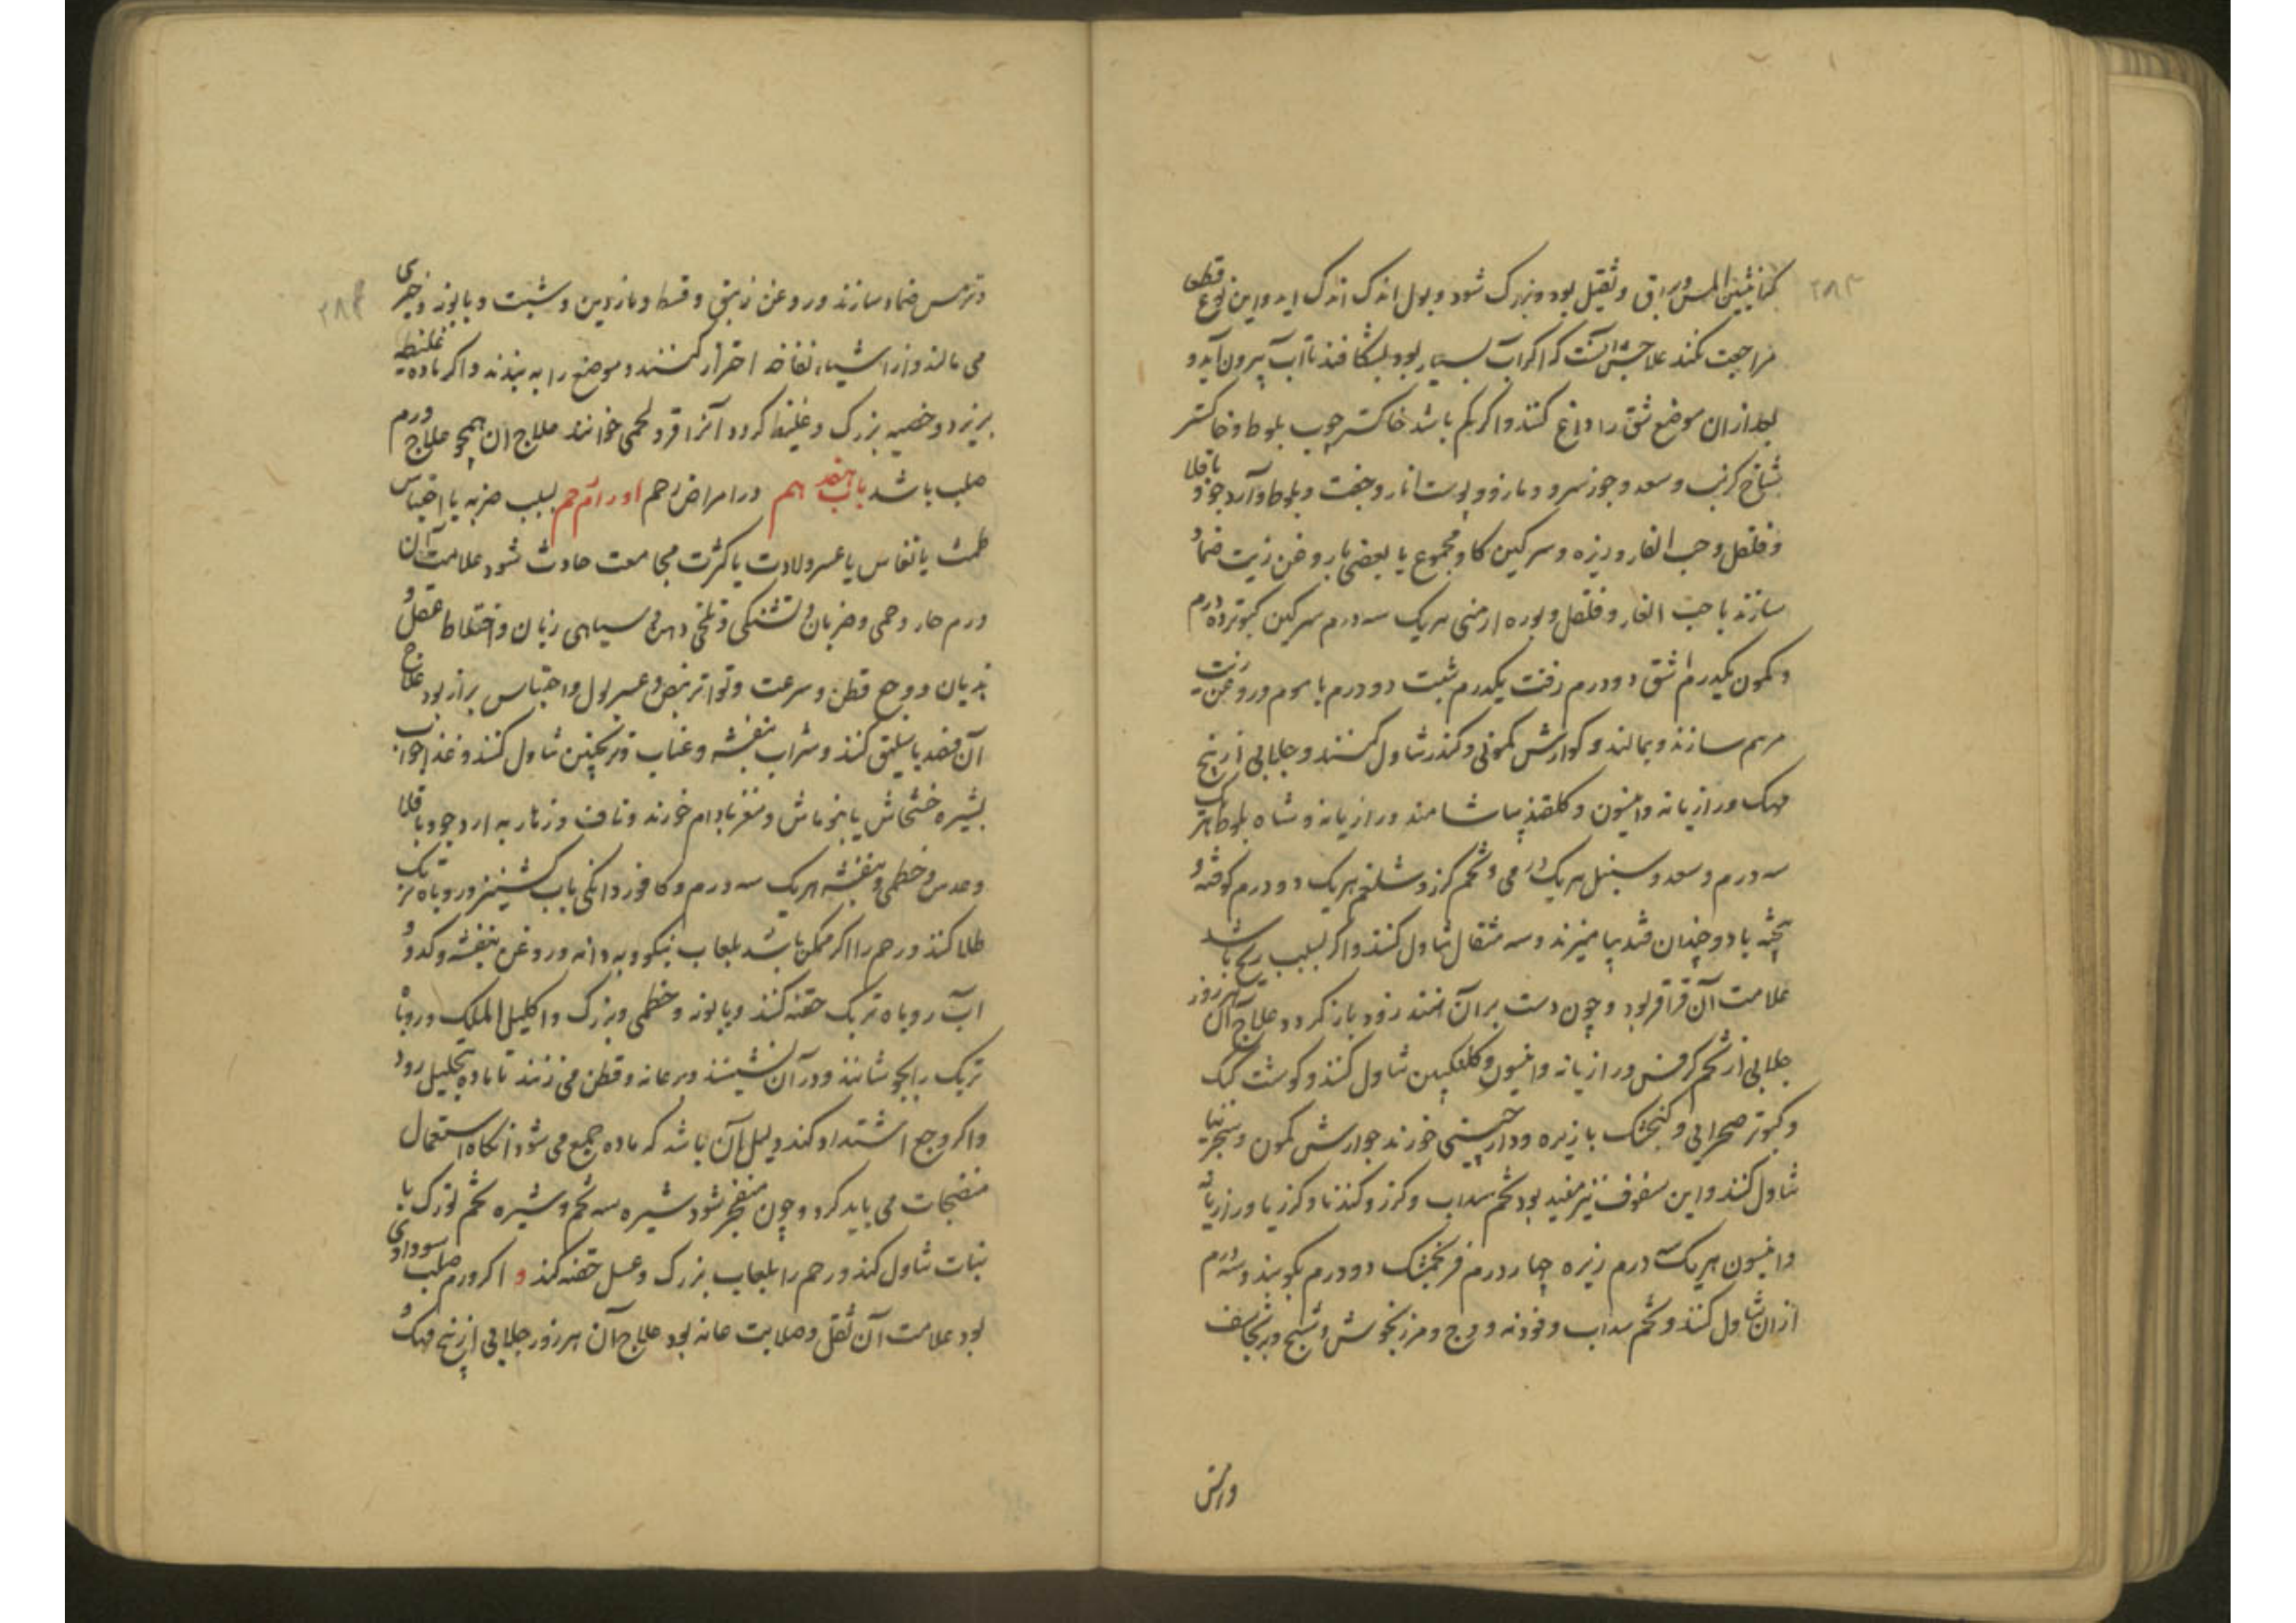 ۲۸۳
وثقیل بود و بزرک شود و بول اندک اندک آید و این نوع قطعی
مراجعت نکند علاجش آنست که اکر آب بسیار بود بشکافند تا آب بیرون آید و
بعد از ان موضع شق را داغ کنند و اکر کم باشد خاکستر چوب بلوط و خاکستر
شاخ کرنب و سعد و جوز سرو و مازو و پوست انار و جفت بلوط و آرد جو و باقلا
و فلفل و حب الغار و زیره و سرکین کاو مجموع یا بعضی با روغن زیت ضماد
سازند یا حب الغار و فلفل و بوره ارمنی هریک سه درم سرکین کبوتر ده درم
و کمون یکدرم اشق دو درم زفت یکدرم شبت دو درم با موم و روغن زیت
مرهم سازند و بمالند و کوارش کمونی و کندر تناول کنند و جلابی از بیخ
مهک و رازیانه و انیسون و کلقند بیاشامند و رازیانه و شاه بلوط هریک
سه درم و سعد و سنبل هریک درمی و تخم کرز و شلغم هریک دو درم کوفته و
بیخته با دو چندان قند بیامیزند و سه مثقال تناول کنند و اکر بسبب ریح باشد
علامت آن قراقر بود و چون دست بر آن نهند زود باز کردد علاج آن هر روز
جلابی از تخم کرفس و رازیانه و انیسون و کلنکبین تناول کنند و کوشت کبک
و کبوتر صحرایی و کنجشک با زیره و دارچینی خورند جوارش کمون و سنجرنیا
تناول کنند و این سفوف نیز مفید بود تخم سداب و کرز و کندنا و کرویا و رازیانه
و انیسون هریک سه درم زیره چهار درم فرنجمشک دو درم بکوبند و سه درم
ازان تناول کنند و تخم سداب و فودنه و وج و مرزنجوش و شیح و برنجاسف
۲۸۴
و ترمس ضماد سازند و روغن زنبق و قسط و ناردین و شبت و بابونه و خیری
می مالند و از اشیاء نفاخه احتراز کنند و موضع را به بندند و اکر ماده غلیظه
بریزد و خصیه بزرک و غلیظ کردد آنرا قرو لحمی خوانند علاج آن همچو علاج ورم
صلب باشد باب هفدهم در امراض رحم اورام رحم بسبب ضربه یا احتباس
طمث یا نفاس یا عسر ولادت یا کثرت مجامعت حادث شود علامت آن
ورم حار و حمی و ضربان و تشنکی و تلخی دهن و سیاهی زبان و اختلاط عقل و
هذیان و وجع قطن و سرعت و تواتر نبض و عسر بول و احتباس براز بود علاج
آن فصد باسلیق کنند و شراب بنفشه و عناب و ترنجبین تناول کنند و غذا جواب
بشیره خشخاش یا بنوماش و مغز بادام خورند و ناف و زهار به ارد جو و باقلا
و عدس و خطمی و بنفشه هریک سه درم و کافور دانکی باب کشنیز و روباه تربک
طلا کنند و رحم را اکر ممکن باشد بلعاب نیکو و به دانه و روغن بنفشه و کدو و
اب روباه تربک حقنه کنند و بابونه و خطمی و بزرک و اکلیل الملک و روباه
تربک را بجوشانند و در آن نشینند و بر عانه و قطن می زنند تا ماده بتحلیل رود
و اکر وجع اشتداد کند دلیل آن باشد که ماده جمع می شود انکاه استعمال
منضجات می باید کرد و چون منفجر شود شیره سه تخم و شیره تخم تورک با
نبات تناول کند و رحم را بلعاب بزرک و عسل حقنه کند و اکر ورم صلب سوداوی
بود علامت آن ثقل و صلابت عانه بود علاج آن هر روز جلابی از بیخ مهک و